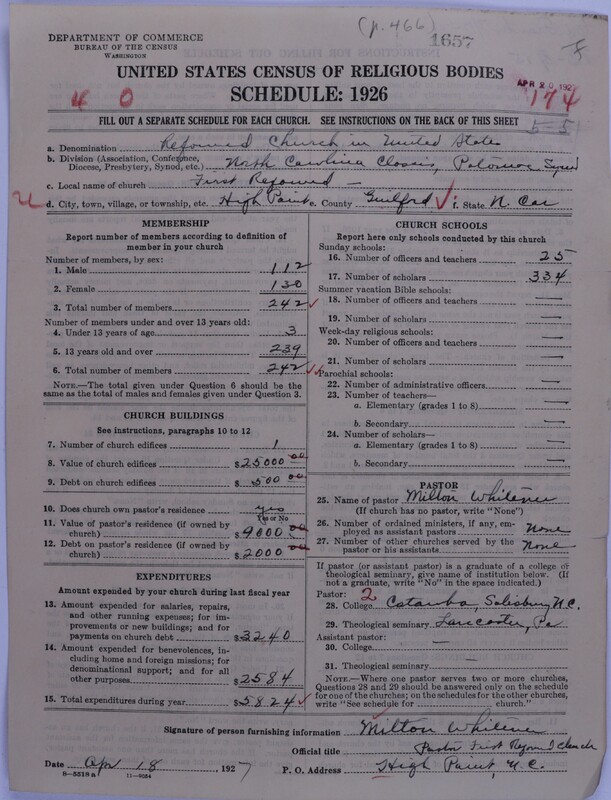 (p. 466)
1657
DEPARTMENT OF COMMERCE
BUREAU OF THE CENSUS
WASHINGTON
UNITED STATES CENSUS OF RELIGIOUS BODIES
SCHEDULE: 1926
APR 20 1927
4 0
174
FILL OUT A SEPARATE SCHEDULE FOR EACH CHURCH. SEE INSTRUCTIONS ON THE BACK OF THIS SHEET
5-5
a. Denomination Reformed Church in United States
b. Division (Association, Conference, Diocese, Presbytery, Synod, etc.) North Carolina Classis, Potomac Synod
c. Local name of church First Reformed —
d. City, town, village, or township, etc. High Point e. County Guilford f. State N. Car
MEMBERSHIP
Report number of members according to definition of member in your church
Number of members, by sex:
1. Male 112
2. Female 130
3. Total number of members 242
Number of members under and over 13 years old:
4. Under 13 years of age 3
5. 13 years old and over 239
6. Total number of members 242
NOTE.—The total given under Question 6 should be the same as the total of males and females given under Question 3.
CHURCH BUILDINGS
See instructions, paragraphs 10 to 12
7. Number of church edifices 1
8. Value of church edifices $25000 00
9. Debt on church edifices $500 00
10. Does church own pastor's residence yes
Yes or No
11. Value of pastor's residence (if owned by church) $9000 00
12. Debt on pastor's residence (if owned by church) $2000 00
EXPENDITURES
Amount expended by your church during last fiscal year
13. Amount expended for salaries, repairs, and other running expenses; for improvements or new buildings; and for payments on church debt $3240
14. Amount expended for benevolences, including home and foreign missions; for denominational support; and for all other purposes $2584
15. Total expenditures during year $5824
CHURCH SCHOOLS
Report here only schools conducted by this church
Sunday schools:
16. Number of officers and teachers 25
17. Number of scholars 334
Summer vacation Bible schools:
18. Number of officers and teachers —
19. Number of scholars —
Week-day religious schools:
20. Number of officers and teachers —
21. Number of scholars —
Parochial schools:
22. Number of administrative officers —
23. Number of teachers—
a. Elementary (grades 1 to 8) —
b. Secondary —
24. Number of scholars—
a. Elementary (grades 1 to 8) —
b. Secondary —
PASTOR
25. Name of pastor Milton Whitener
(If church has no pastor, write "None")
26. Number of ordained ministers, if any, employed as assistant pastors None
27. Number of other churches served by the pastor or his assistants None
If pastor (or assistant pastor) is a graduate of a college or theological seminary, give name of institution below. (If not a graduate, write "No" in the space indicated.)
Pastor: 2
28. College Catawba, Salisbury N.C.
29. Theological seminary Lancaster, Pa
Assistant pastor:
30. College —
31. Theological seminary —
NOTE.—Where one pastor serves two or more churches, Questions 28 and 29 should be answered only on the schedule for one of the churches; on the schedules for the other churches, write "See schedule for ........ church."
Signature of person furnishing information Milton Whitener
Official title Pastor First Reformed Church
Date Apr 18 1927
P. O. Address High Point, N.C.
8—5518a 11—9054